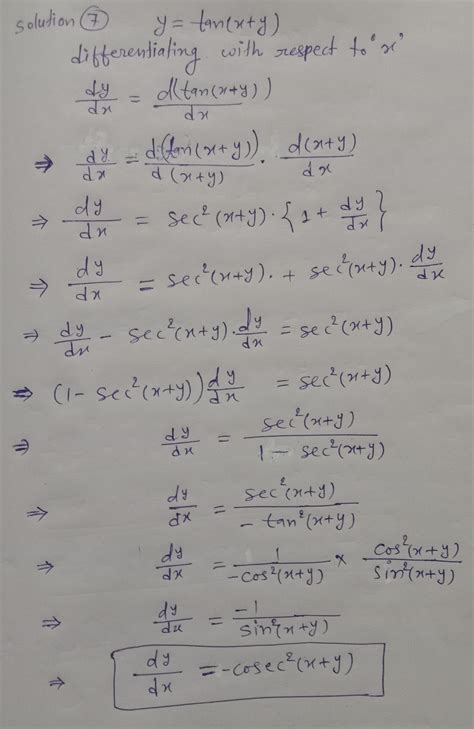 Solution ⑦ y = tan(x+y)
differentiating with respect to 'x'
dy/dx = d(tan(x+y))/dx
⇒ dy/dx = d(tan(x+y))/d(x+y) · d(x+y)/dx
⇒ dy/dx = sec²(x+y) · {1 + dy/dx}
⇒ dy/dx = sec²(x+y) · + sec²(x+y) · dy/dx
⇒ dy/dx - sec²(x+y) · dy/dx = sec²(x+y)
⇒ (1 - sec²(x+y)) dy/dx = sec²(x+y)
⇒ dy/dx = sec²(x+y)/1 - sec²(x+y)
⇒ dy/dx = sec²(x+y)/- tan²(x+y)
⇒ dy/dx = 1/-cos²(x+y) × cos²(x+y)/sin²(x+y)
⇒ dy/dx = -1/sin²(x+y)
⇒ dy/dx = -cosec²(x+y)